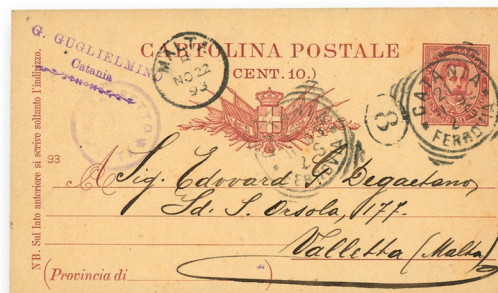 G. GUGLIELMINO
Catania
CARTOLINA POSTALE
(CENT. 10.)
MALTA
NO 22
93
CATANIA
FERROVIA
3
93
NB. Sul lato anteriore si scrive soltanto l'indirizzo.
A Sig. Edoardo E. Degaetano,
Sd. S. Orsola, 177.
Valletta (Malta)
(Provincia di